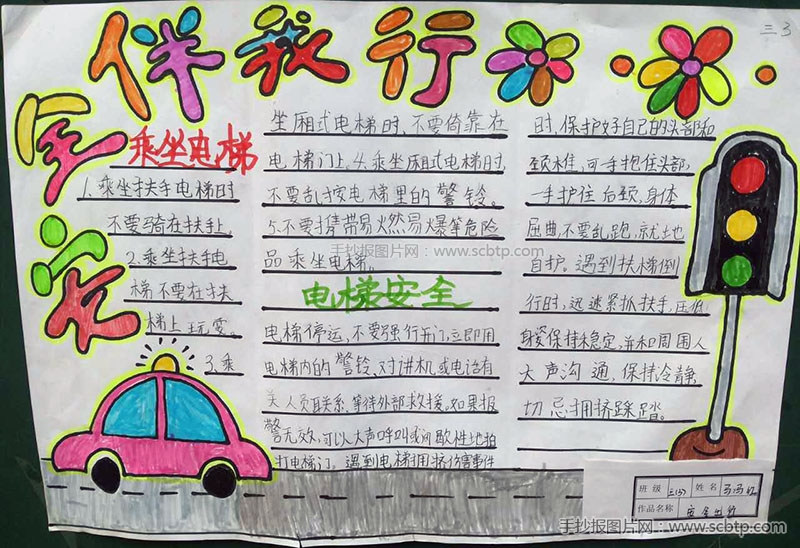 安全伴我行
三3
乘坐电梯
1.乘坐扶手电梯时
不要骑在扶手上
2.乘坐扶手电
梯不要在扶
梯上玩耍。
3.乘
坐厢式电梯时,不要倚靠在
电梯门上。4.乘坐厢式电梯时,
不要乱按电梯里的警铃。
5.不要携带易火然易爆等危险
品乘坐电梯。
电梯安全
电梯停运,不要强行开门,立即用
电梯内的警铃、对讲机或电话有
关人员联系,等待外部救援。如果报
警无效,可以大声呼叫或间歇性地拍
打电梯门。遇到电梯拥挤伤害事件
时,保护好自己的头部和
颈椎,可手抱住头部,
一手护住后颈,身体
屈曲,不要乱跑,就地
自护。遇到扶梯倒
行时,迅速紧抓扶手,压低
身姿保持稳定,并和周围人
大声沟通,保持冷静
切忌拥挤踩踏。
手抄报图片网:www.scbtp.com
班级 三(3) 姓名
作品名称
手抄报图片网:www.scbtp.com